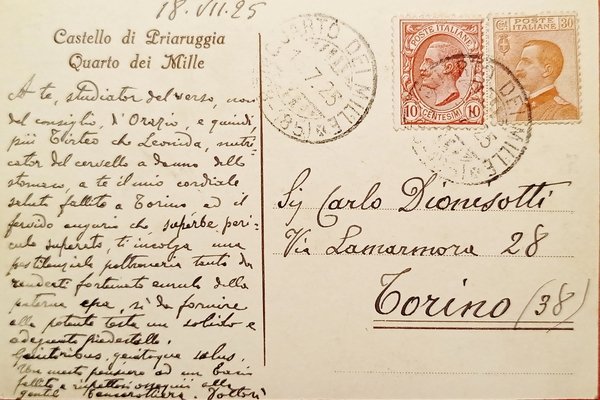 18. VII. 25
Castello di Priaruggia
Quarto dei Mille
A te, studiator del verso, non
del consiglio, d'Orazio, e quindi
più Tirteo che Leonida, nutri-
cator del cervello a danno dello
stomaco, a te il mio cordiale
saluto fallito a Torino ed il
fervido augurio che, superbe, peri-
culo superato, ti incolga una
pestilenziale poltroneria tanto da
renderti fortunato emulo della
paterna epa, sì da fornire
alla potente testa un solido e
adeguato piedestallo.
Genitoribus, genitoque salus.
Un mesto pensiero ad un
fallito e rispettosi ossequi alla
gentil
QUARTO DEI MILLE
7.25
POSTE ITALIANE
10 CENTESIMI 10
POSTE ITALIANE
Cent 30
Sig Carlo Dionisotti
Via Lamarmora 28
Torino (38)